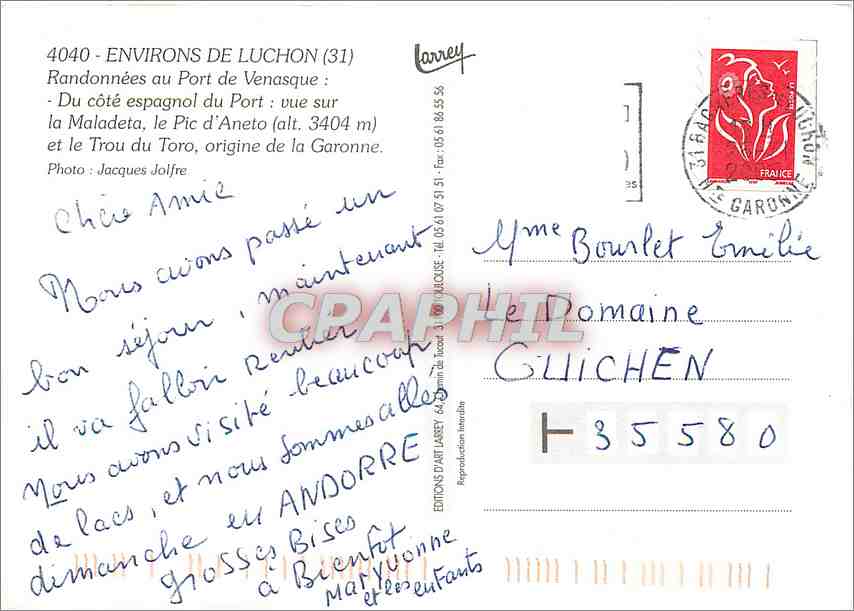 4040 - ENVIRONS DE LUCHON (31)
Randonnées au Port de Venasque :
- Du côté espagnol du Port : vue sur
la Maladeta, le Pic d'Aneto (alt. 3404 m)
et le Trou du Toro, origine de la Garonne.
Photo : Jacques Jolfre
Larrey
Chère Amie
Nous avons passé un
bon séjour, maintenant
il va falloir rentrer
Nous avons visité beaucoup
de lacs, et nous sommes allés
dimanche en ANDORRE
grosses Bises
à Bientot
Maryvonne
et les enfants
EDITIONS D'ART LARREY 64, chemin de Tucaut 31 TOULOUSE - Tél. 05 61 07 51 51 - Fax : 05 61 86 55 56
Reproduction Interdite
CPAPHIL
LA POSTE
FRANCE
31 BAGNERES LUCHON
Hte GARONNE
Mme Bourlet Emilie
Le Domaine
GUICHEN
35580